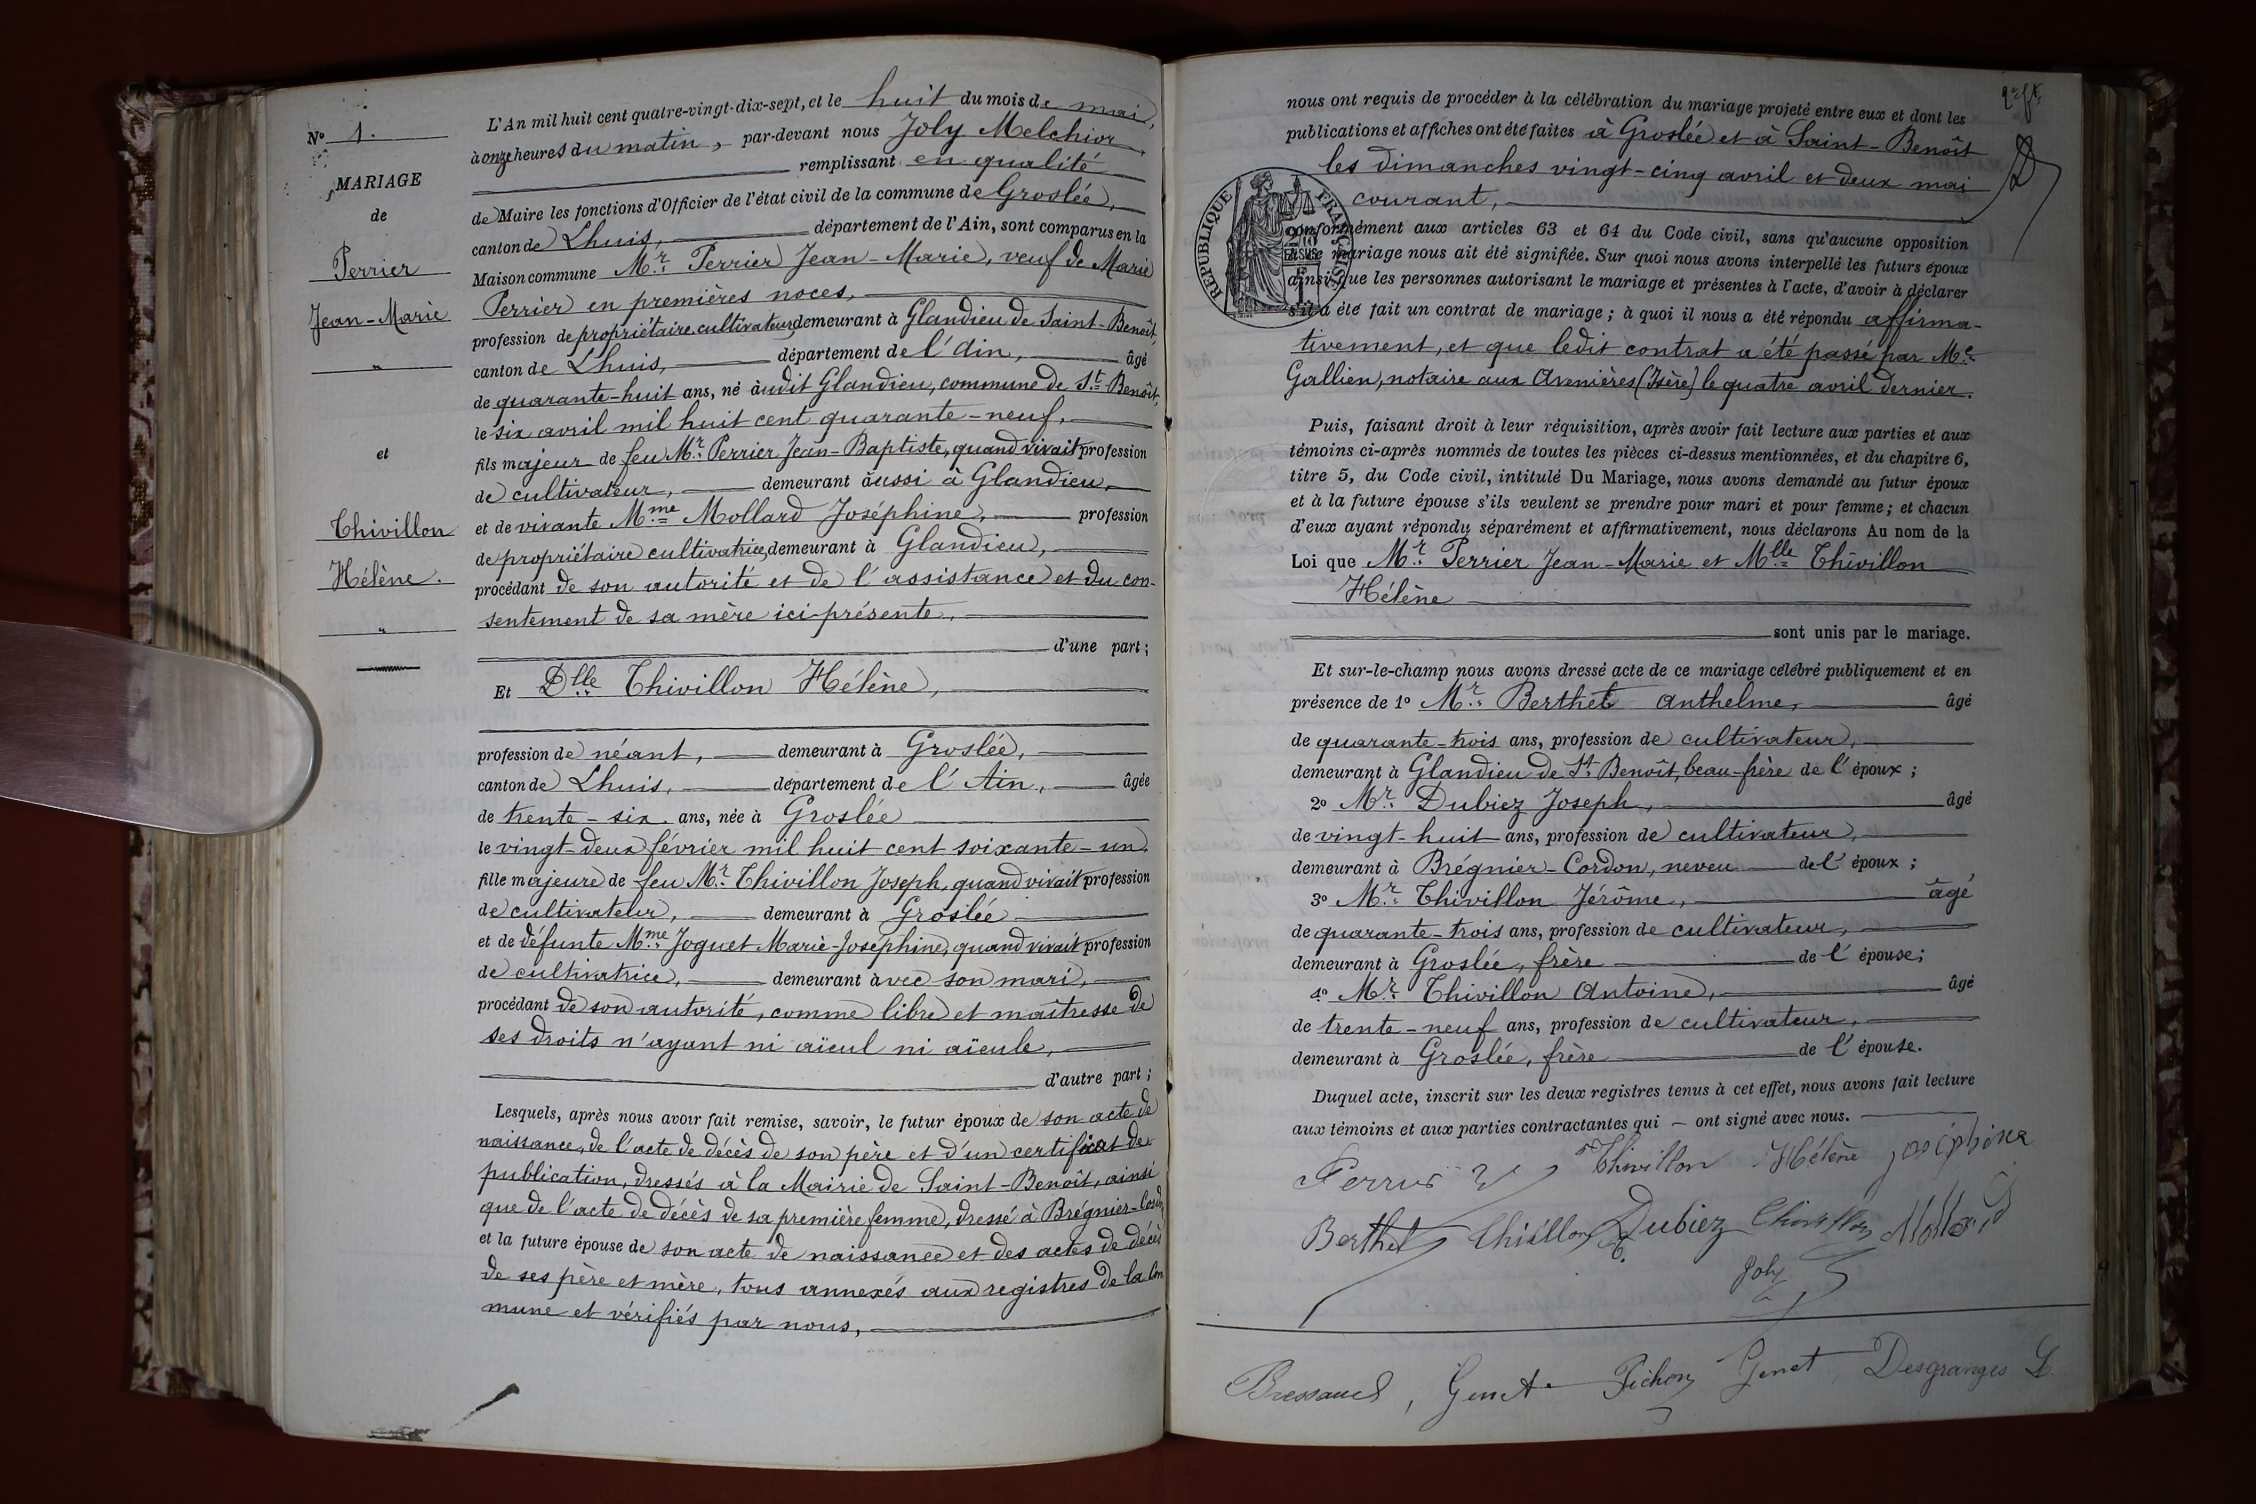 Nº 1.
MARIAGE
de
Perrier
Jean-Marie
"
et
Thivillon
Hélène.
"
L'An mil huit cent quatre-vingt-dix-sept, et le huit du mois de mai,
à onze heures du matin, par-devant nous Joly Melchior
remplissant en qualité
de Maire les fonctions d'Officier de l'état civil de la commune de Groslée,
canton de Lhuis, département de l'Ain, sont comparus en la
Maison commune Mr. Perrier Jean-Marie, veuf de Marie
Perrier en premières noces,
profession de propriétaire cultivateur, demeurant à Glandieu de Saint-Benoît,
canton de Lhuis, département de l'Ain, âgé
de quarante-huit ans, né àudit Glandieu, commune de St. Benoît,
le six avril mil huit cent quarante-neuf,
fils majeur de feu Mr. Perrier Jean-Baptiste, quand vivait profession
de cultivateur, demeurant aussi à Glandieu,
et de vivante Mme Mollard Joséphine, profession
de propriétaire cultivatrice, demeurant à Glandieu,
procédant de son autorité et de l'assistance et du con-
sentement de sa mère ici présente,
d'une part;
Et Dlle Thivillon Hélène,
profession de néant, demeurant à Groslée,
canton de Lhuis, département de l'Ain, âgée
de trente-six ans, née à Groslée
le vingt-deux février mil huit cent soixante-un,
fille majeure de feu Mr. Thivillon Joseph, quand vivait profession
de cultivateur, demeurant à Groslée
et de défunte Mme Joguet Marie-Joséphine, quand vivait profession
de cultivatrice, demeurant avec son mari,
procédant de son autorité, comme libre et maîtresse de
ses droits n'ayant ni aïeul ni aïeule,
d'autre part;
Lesquels, après nous avoir fait remise, savoir, le futur époux de son acte de
naissance, de l'acte de décès de son père et d'un certificat de
publication, dressés à la Mairie de Saint-Benoît, ainsi
que de l'acte de décès de sa première femme, dressé à Brégnier-Cordon
et la future épouse de son acte de naissance et des actes de décès
de ses père et mère, tous annexés aux registres de la Com
mune et vérifiés par nous,
nous ont requis de procéder à la célébration du mariage projeté entre eux et dont les
publications et affiches ont été faites à Groslée et à Saint-Benoît
les dimanches vingt-cinq avril et deux mai
courant,
RÉPUBLIQUE FRANÇAISE
conformément aux articles 63 et 64 du Code civil, sans qu'aucune opposition
à ce mariage nous ait été signifiée. Sur quoi nous avons interpellé les futurs époux
ainsi que les personnes autorisant le mariage et présentes à l'acte, d'avoir à déclarer
s'il a été fait un contrat de mariage; à quoi il nous a été répondu affirma-
tivement, et que ledit contrat a été passé par Me.
Gallien, notaire aux Avenières (Isère) le quatre avril dernier.
Puis, faisant droit à leur réquisition, après avoir fait lecture aux parties et aux
témoins ci-après nommés de toutes les pièces ci-dessus mentionnées, et du chapitre 6,
titre 5, du Code civil, intitulé Du Mariage, nous avons demandé au futur époux
et à la future épouse s'ils veulent se prendre pour mari et pour femme; et chacun
d'eux ayant répondu séparément et affirmativement, nous déclarons Au nom de la
Loi que Mr. Perrier Jean-Marie et Mlle Thivillon
Hélène
sont unis par le mariage.
Et sur-le-champ nous avons dressé acte de ce mariage célébré publiquement et en
présence de 1º Mr. Berthet Anthelme, âgé
de quarante-trois ans, profession de cultivateur,
demeurant à Glandieu de St. Benoît, beau-frère de l'époux;
2º Mr. Dubiez Joseph, âgé
de vingt-huit ans, profession de cultivateur,
demeurant à Brégnier-Cordon, neveu de l'époux;
3º Mr. Thivillon Jérôme, âgé
de quarante-trois ans, profession de cultivateur,
demeurant à Groslée, frère de l'épouse;
4º Mr. Thivillon Antoine, âgé
de trente-neuf ans, profession de cultivateur,
demeurant à Groslée, frère de l'épouse.
Duquel acte, inscrit sur les deux registres tenus à cet effet, nous avons fait lecture
aux témoins et aux parties contractantes qui — ont signé avec nous.
Perrier Thivillon Hélène joséphine
Berthet Thivillon Dubiez Thivillon Mollard
Joly
Bressand, Genet Pichon Genet, Desgranges L.